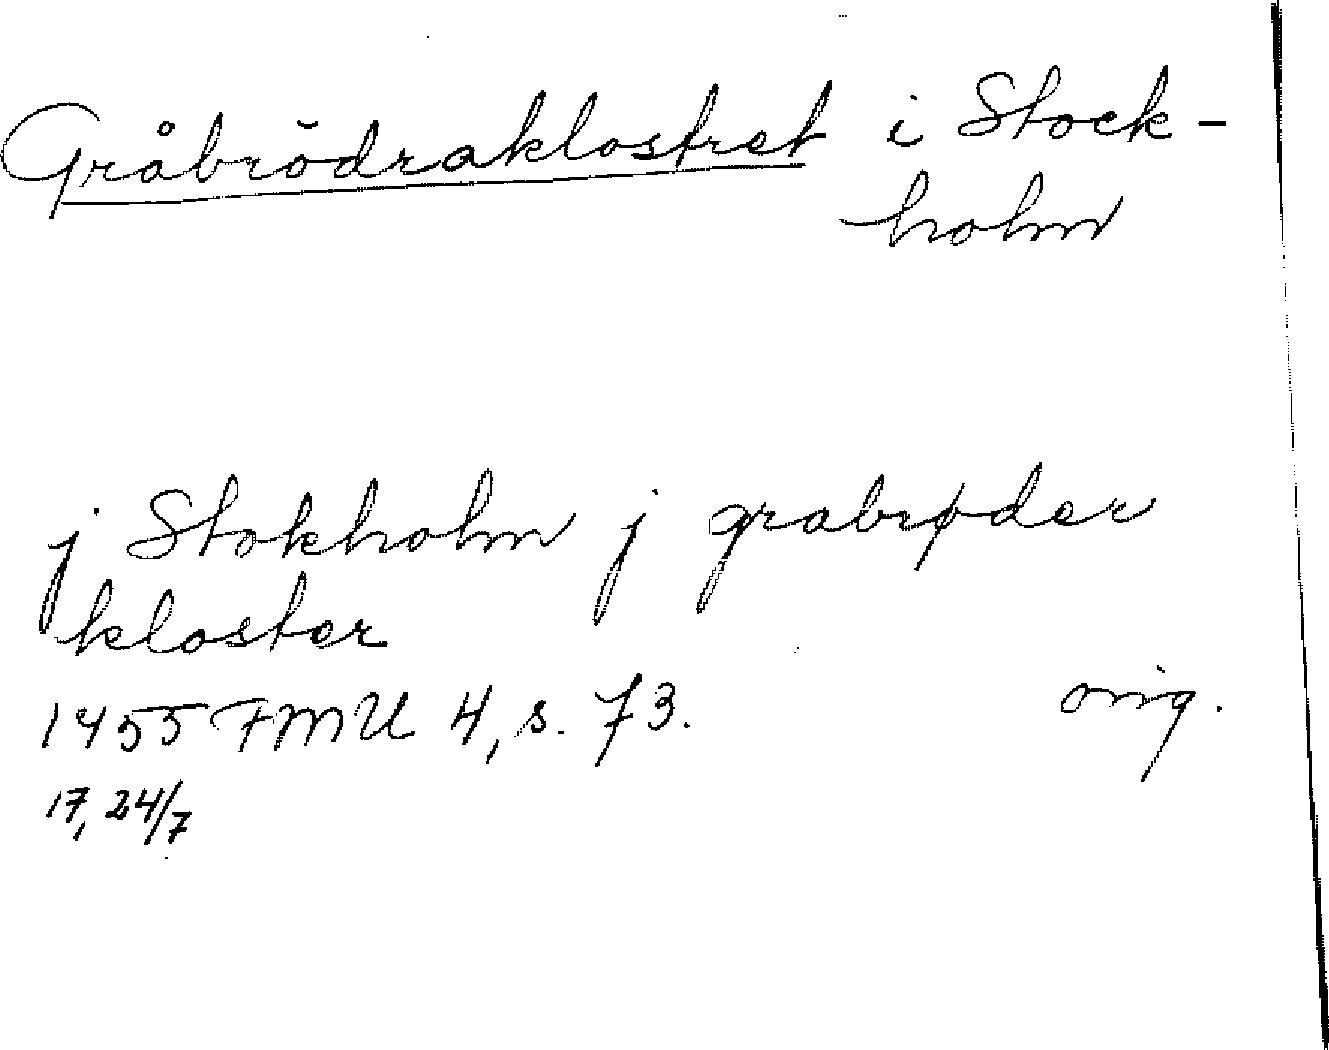 Gråbrödraklostret i Stock-
holm
j Stokholm j grabrøder
kloster
1455 FMU 4, s. 73. orig.
17, 24/7